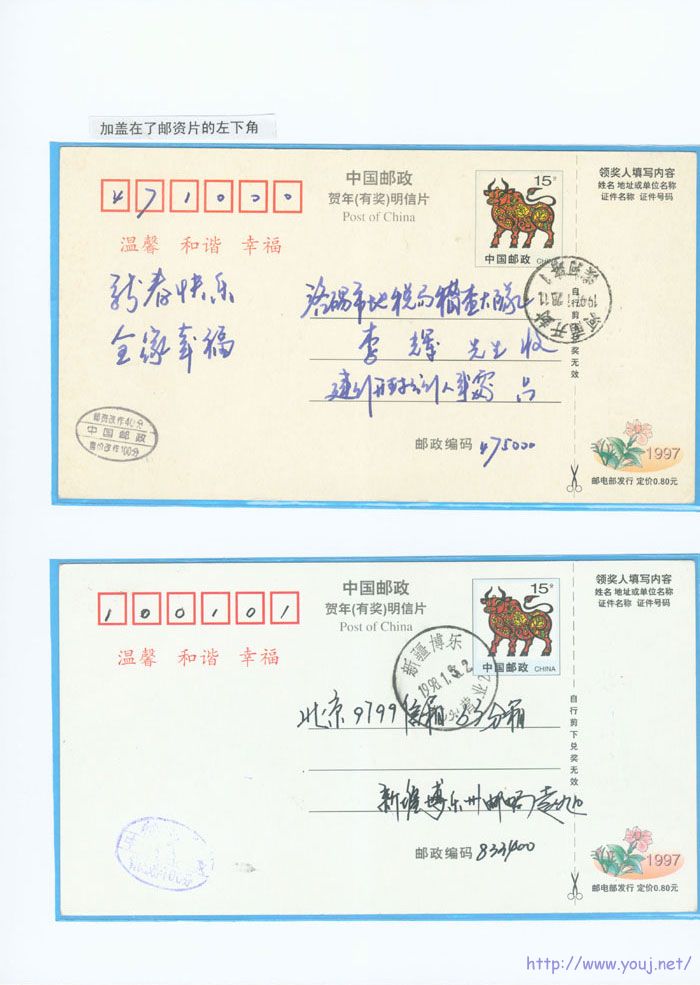 加盖在了邮资片的左下角
471000
中国邮政
贺年(有奖)明信片
Post of China
15分
中国邮政 CHINA
领奖人填写内容
姓名 地址或单位名称
证件名称 证件号码
温馨 和谐 幸福
新春快乐
全家幸福
洛阳市地税局稽查大队
李辉 先生 收
河南开封
自行剪下兑奖无效
邮资改作40分
中国邮政
售价改作100分
邮政编码 475000
1997
邮电部发行 定价0.80元
100101
中国邮政
贺年(有奖)明信片
Post of China
15分
中国邮政 CHINA
领奖人填写内容
姓名 地址或单位名称
证件名称 证件号码
温馨 和谐 幸福
新疆博乐
1998.1.
营业
北京9799信箱 63分箱
自行剪下兑奖无效
新疆博乐州邮局
邮政编码 833400
1997
邮电部发行 定价0.80元
http://www.youj.net/